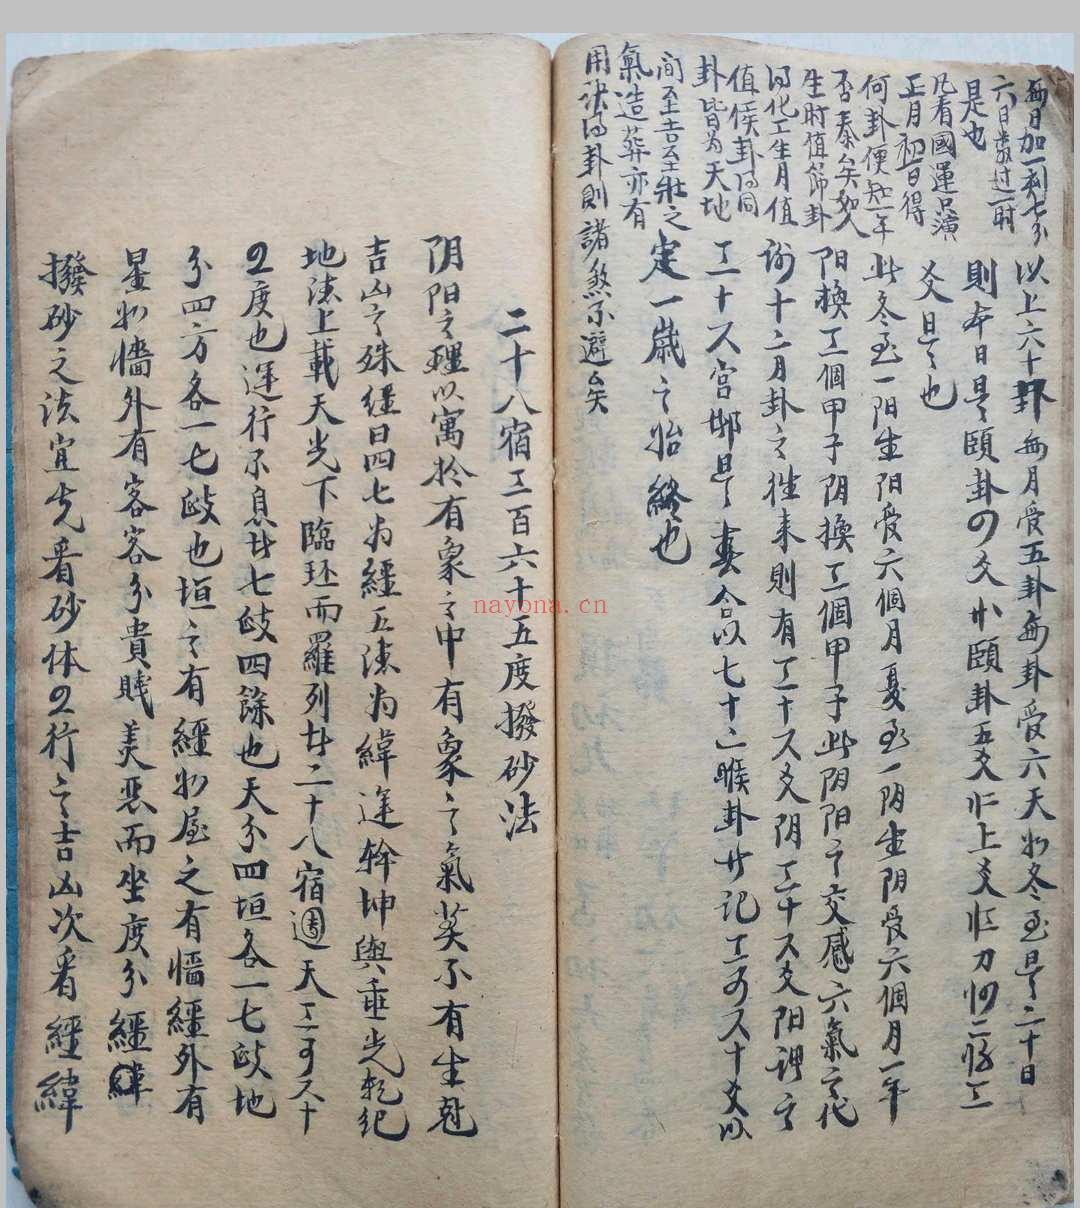 每月加一刻七分
六日零过一时
是也
凡看國運只演
正月初一日得
何卦便知一年
否泰矣如人
生时值節卦
得化工生月值
值侯卦得同
卦皆为天地
间至吉至壯之
氣造葬亦有
用法得卦則諸煞不避矣
以上六十卦每月受五卦每卦受六天如冬至是二十日
則本日是頤卦初爻
頤卦五爻
上爻
爻是也
此冬至一阳生阳受六個月夏至一阴生阴受六個月一年
阳換三個甲子阴換三個甲子此阴阳之交感六氣之代
谢十二月卦之往来則有三十六爻阴三十六爻阳謂之
三十六宫都是春合以七十二候卦廿记三百六十爻以
定一歲之始終也
二十八宿三百六十五度撥砂法
阴阳之理以寓於有象之中有象之氣莫不有生尅
吉凶之殊經曰四七为經五德为緯運幹坤輿垂光乾纪
地德上載天光下臨环而羅列廿二十八宿週天三百六十
五度也運行不息廿七政四餘也天分四垣各一七政地
分四方各一七政也垣之有經如屋之有墻經外有
星如墻外有客客分貴賎美惡而坐度分經緯
撥砂之法宜先看砂体五行之吉凶次看經緯
nayona.cn